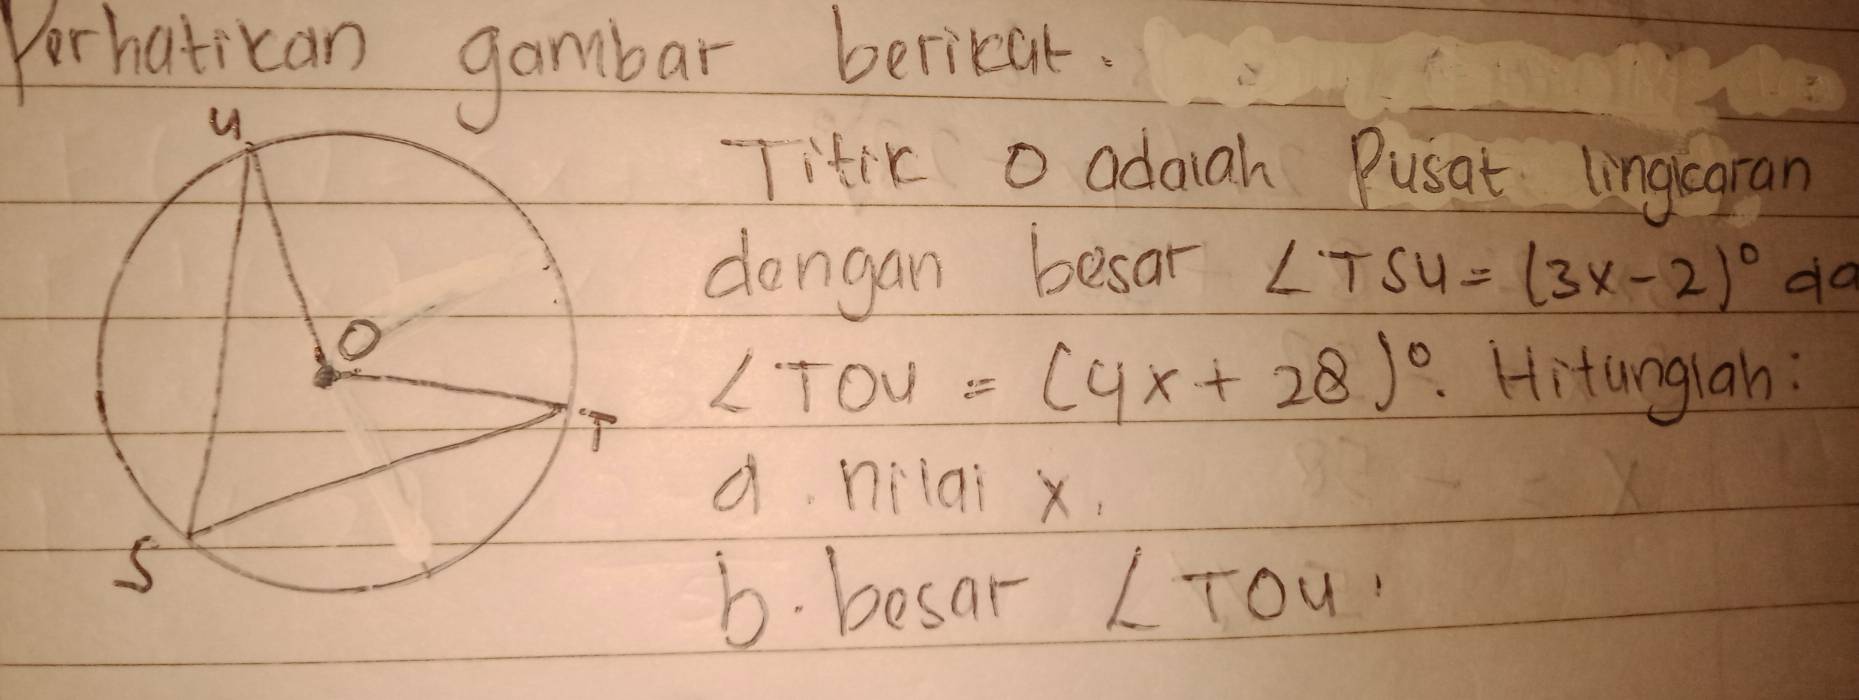 Perhatikan gambar berikut.
U
Titik O adalah Pusat lingkaran
dengan besar ∠TSU = (3x-2)° da
O
∠TOU = (4x + 28)°. Hitunglah:
T
a. nilai x.
S
b. besar ∠TOU.